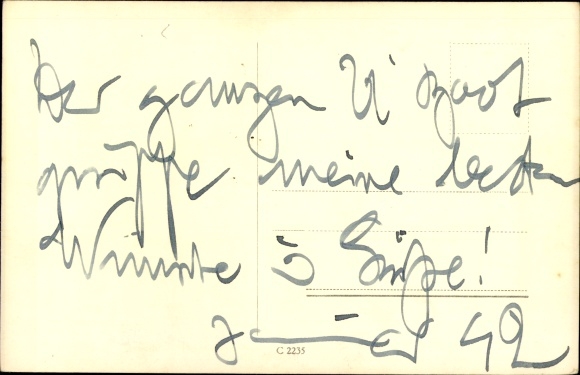 Der ganzen U' boot
gruppe meine besten
Wünsche u Grüße!
Januar 42
C 2235